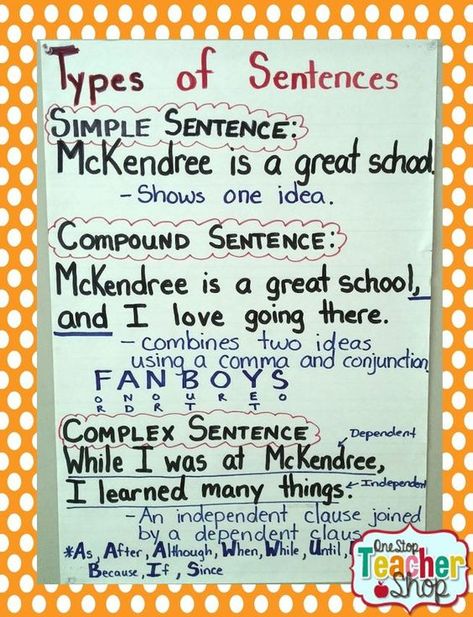 Types of Sentences
SIMPLE SENTENCE:
McKendree is a great school.
- Shows one idea.
COMPOUND SENTENCE:
McKendree is a great school,
and I love going there.
- combines two ideas
using a comma and conjunction
FANBOYS
O N O U R E O
R D R T T
COMPLEX SENTENCE
Dependent
While I was at McKendree,
I learned many things.
Independent
- An independent clause joined
by a dependent claus
*As, After, Although, When, While, Until,
Because, If, Since
One Stop
Teacher
Shop